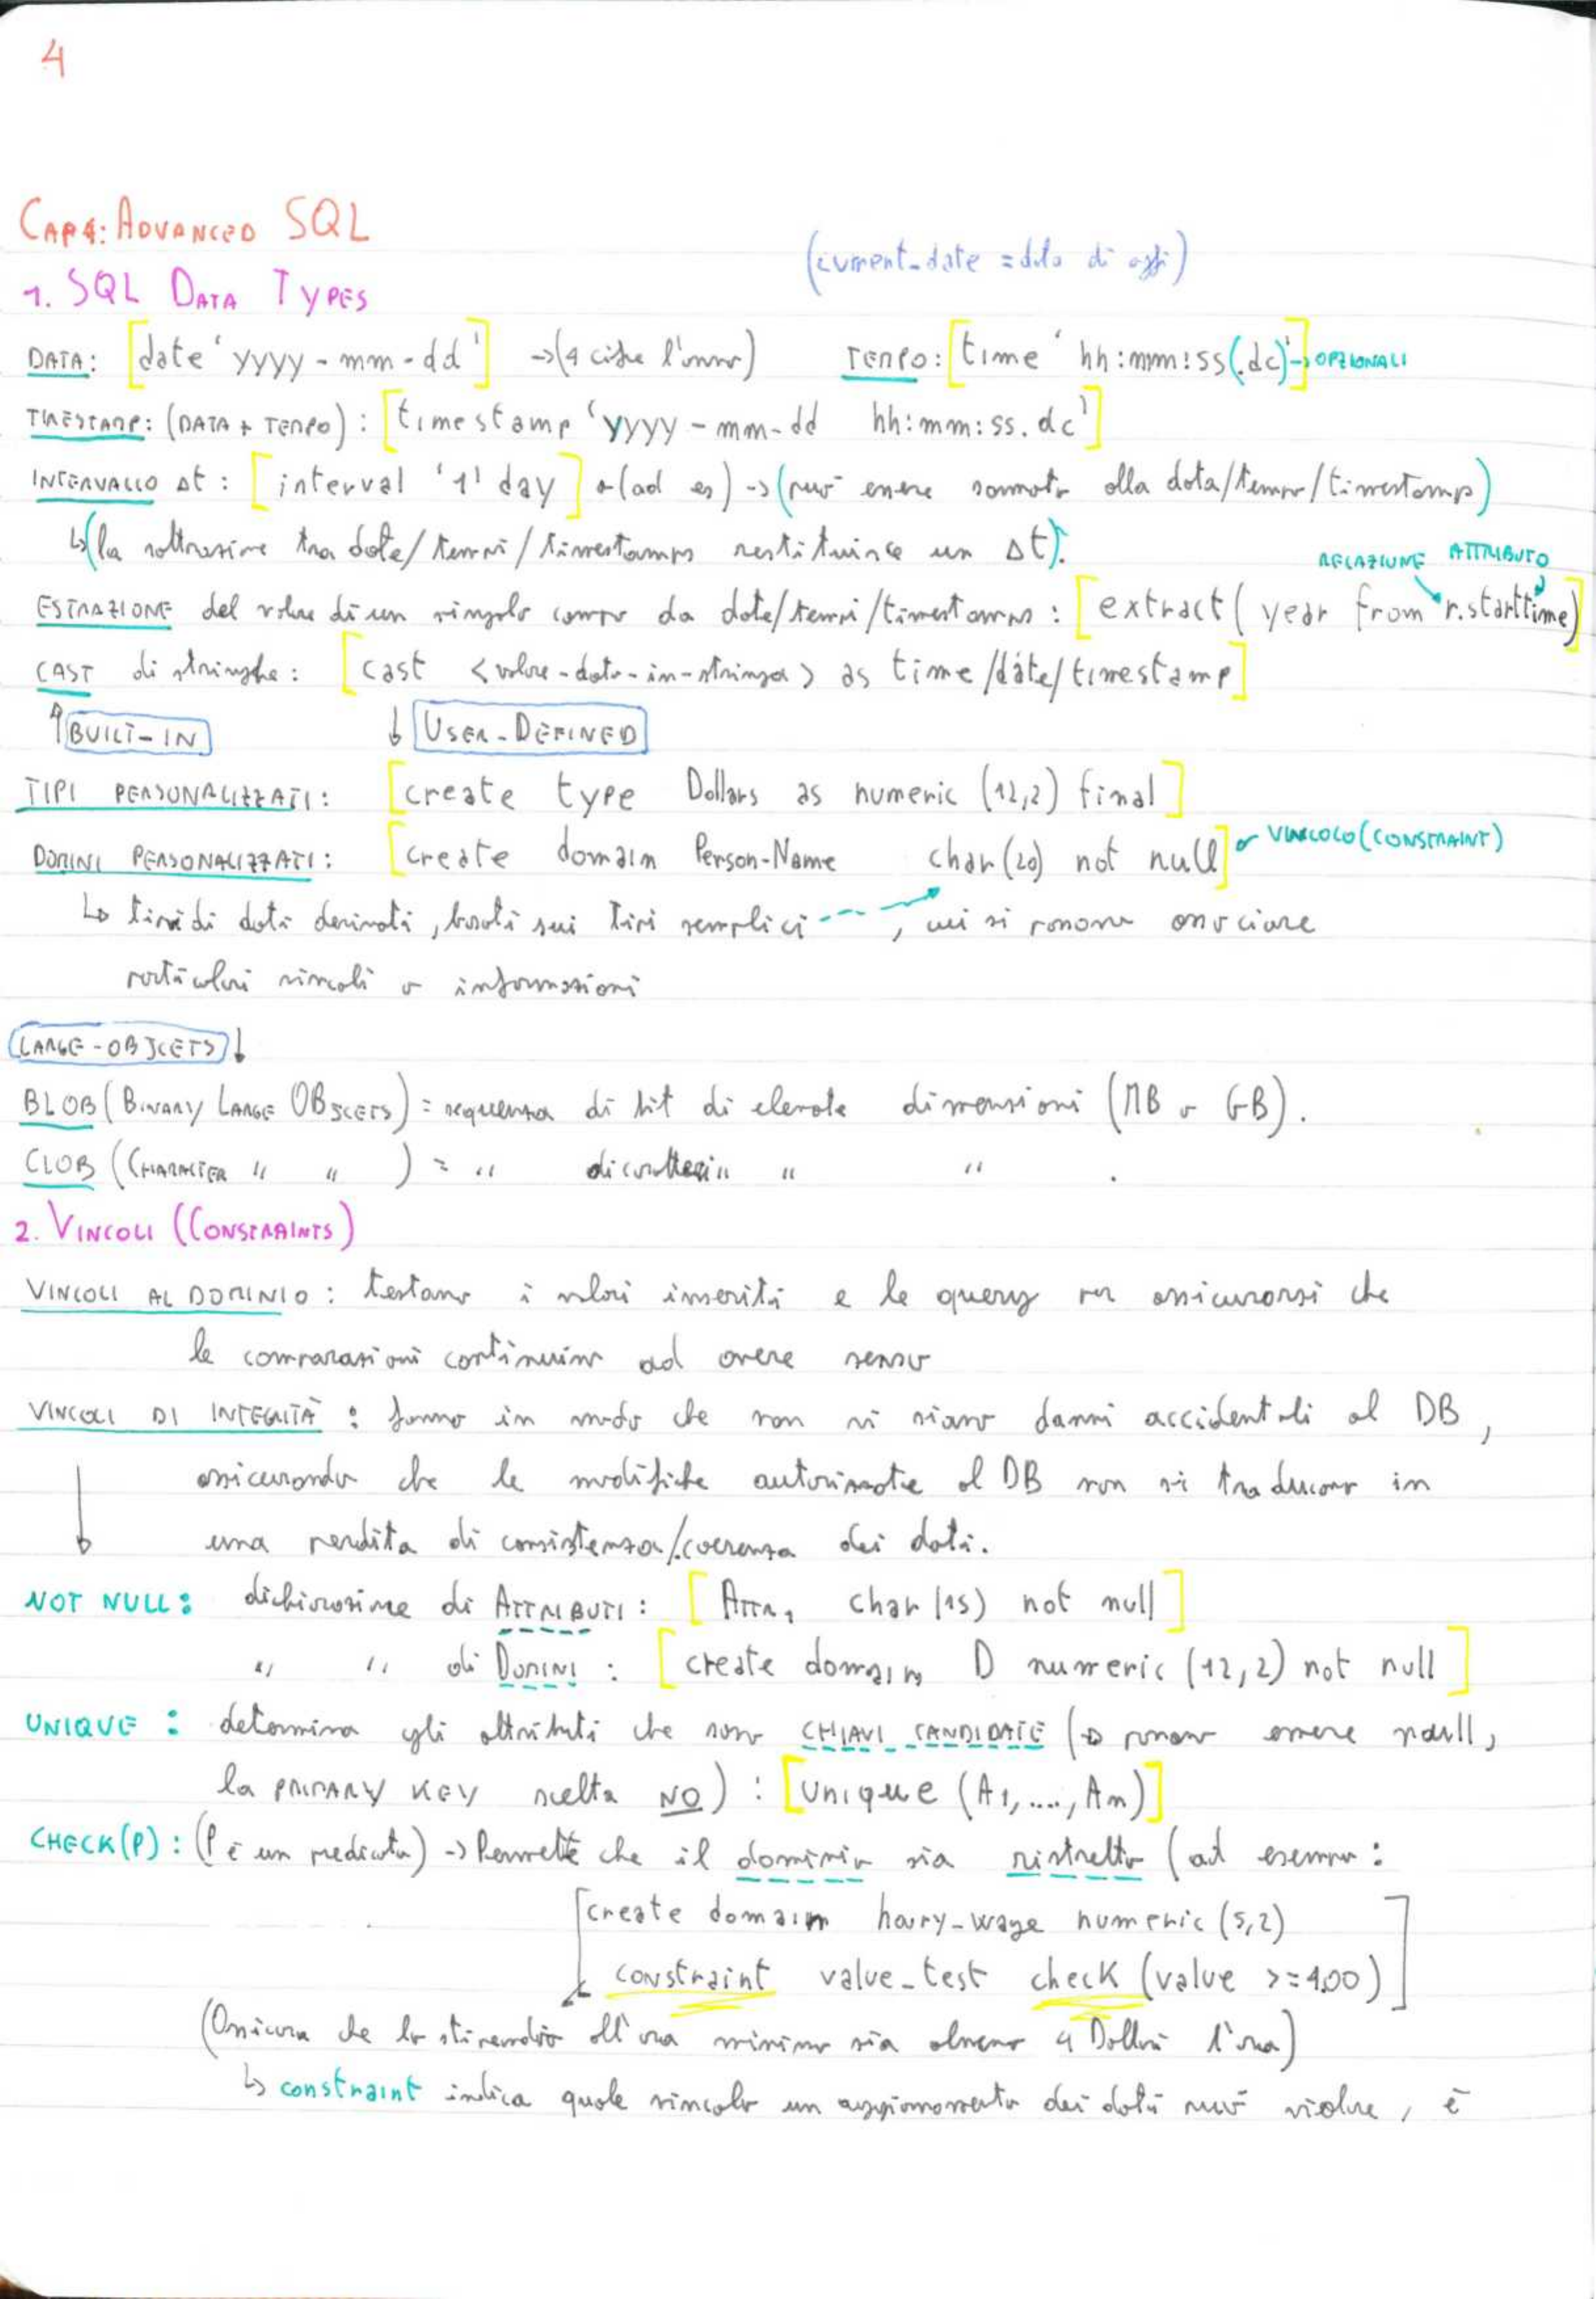 4
CAP4: ADVANCED SQL
(current-date = data di oggi)
1. SQL DATA TYPES
DATA: [date 'yyyy-mm-dd'] →(4 cifre l'anno) TEMPO: [time 'hh:mm:ss(.dc)'] → OPZIONALI
TIMESTAMP: (DATA + TEMPO): [timestamp 'yyyy-mm-dd hh:mm:ss.dc']
INTERVALLO Δt: [interval '1' day] (ad es) → (può essere sommato alla data/tempo/timestamp)
↳ (la sottrazione tra date/tempi/timestamps restituisce un Δt).
RELAZIONE ATTRIBUTO
ESTRAZIONE del valore di un singolo campo da date/tempi/timestamps: [extract (year from r.starttime)]
CAST di stringhe: [cast <valore-dato-in-stringa> as time/date/timestamp]
↑ BUILT-IN ↓ USER-DEFINED
TIPI PERSONALIZZATI: [create type Dollars as numeric (12,2) final]
DOMINI PERSONALIZZATI: [create domain Person-Name char(20) not null] VINCOLO (CONSTRAINT)
↳ tipi di dati derivati, basati sui tipi semplici, cui si possono associare
particolari vincoli o informazioni
LARGE-OBJECTS ↓
BLOB (BINARY LARGE OBJECTS) = sequenza di bit di elevate dimensioni (MB o GB).
CLOB (CHARACTER " " ) = " di caratteri " " " .
2. VINCOLI (CONSTRAINTS)
VINCOLI AL DOMINIO: testano i valori inseriti e le query per assicurarsi che
le comparazioni continuino ad avere senso
VINCOLI DI INTEGRITÀ: fanno in modo che non vi siano danni accidentali al DB,
assicurando che le modifiche autorizzate al DB non si traducano in
una perdita di consistenza/coerenza dei dati.
NOT NULL: dichiarazione di ATTRIBUTI: [ATTR1 char(15) not null]
" " di DOMINI: [create domain D numeric (12,2) not null]
UNIQUE: determina gli attributi che sono CHIAVI CANDIDATE (→ possono essere null,
la PRIMARY KEY scelta NO): [unique (A1,...., Am)]
CHECK(P): (P è un predicato) → Permette che il dominio sia ristretto (ad esempio:
[create domain houry-wage numeric (5,2)
constraint value-test check (value >= 4.00)]
(Assicura che lo stipendio all'ora minimo sia almeno 4 Dollari l'ora)
↳ constraint indica quale vincolo un aggiornamento dei dati può violare, è